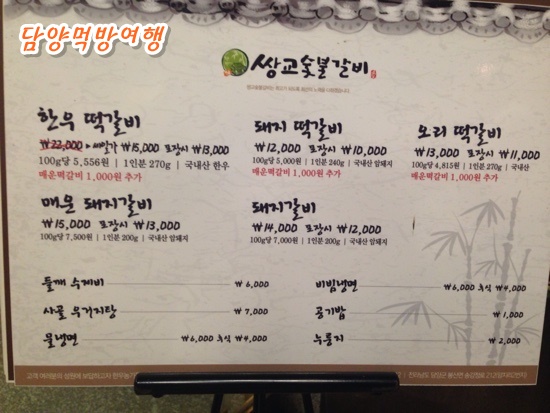 담양먹방여행
쌍교숯불갈비
한우 떡갈비
₩22,000 ▸ 세일가 ₩15,000 포장시 ₩13,000
100g당 5,556원 | 1인분 270g | 국내산 한우
매운떡갈비 1,000원 추가
돼지 떡갈비
₩12,000 포장시 ₩10,000
100g당 5,000원 | 1인분 240g | 국내산 암돼지
매운떡갈비 1,000원 추가
오리 떡갈비
₩13,000 포장시 ₩11,000
100g당 4,815원 | 1인분 270g | 국내산
매운떡갈비 1,000원 추가
매운 돼지갈비
₩15,000 포장시 ₩13,000
100g당 7,500원 | 1인분 200g | 국내산 암돼지
돼지갈비
₩14,000 포장시 ₩12,000
100g당 7,000원 | 1인분 200g | 국내산 암돼지
들깨 수제비 ₩6,000
사골 우거지탕 ₩7,000
물냉면 ₩6,000 후식 ₩4,000
비빔냉면 ₩6,000 후식 ₩4,000
공기밥 ₩1,000
누룽지 ₩2,000